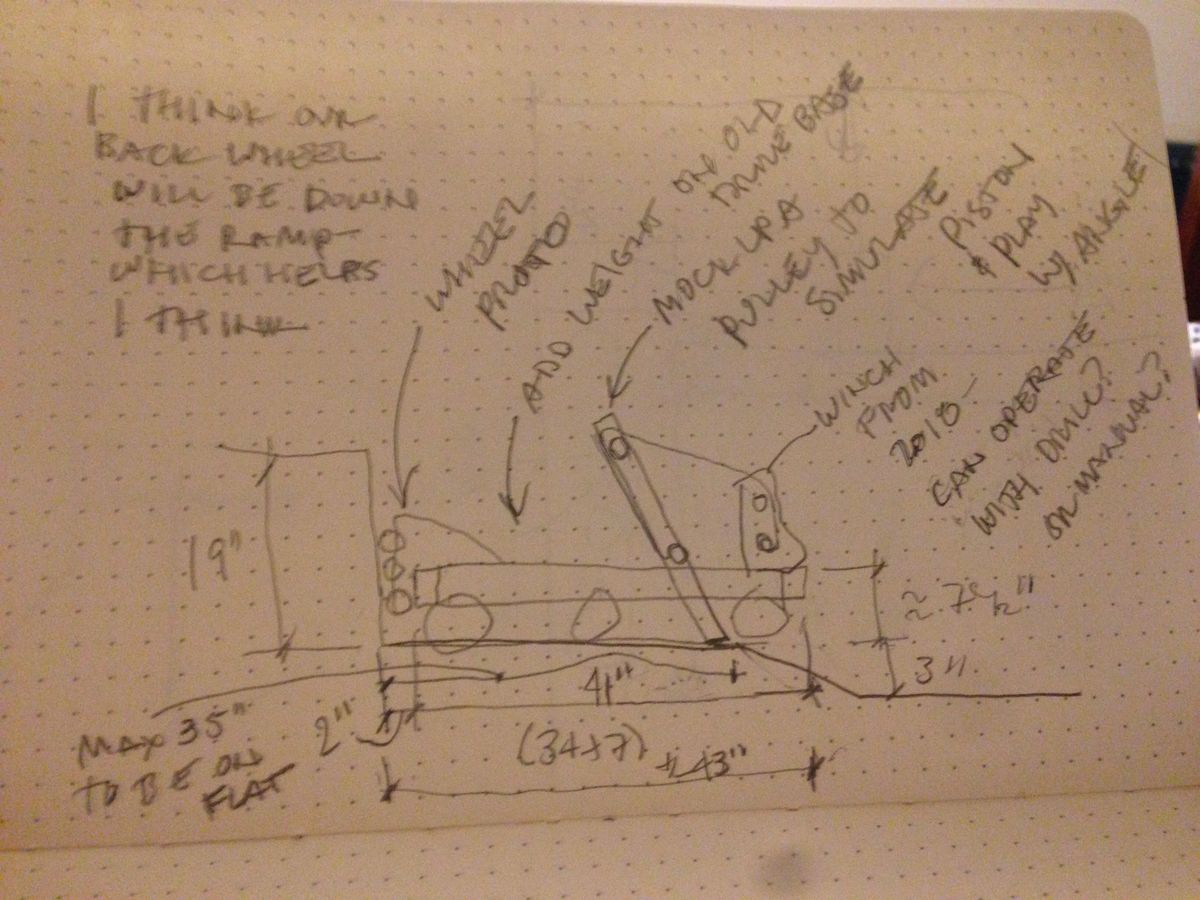 I THINK OUR
BACK WHEEL
WILL BE DOWN
THE RAMP
WHICH HELPS
I THINK
WHEEL
PROTO
ADD WEIGHT ON OLD
DRIVE BASE
MOCK UP A
PULLEY TO
SIMULATE
PISTON
& PLAY
W/ ANGLE
WINCH
FROM
2018-
CAN OPERATE
WITH DRILL?
OR MANUAL?
19"
2"
41"
(34+7)
43"
3"
MAX 35"
TO BE ON
FLAT